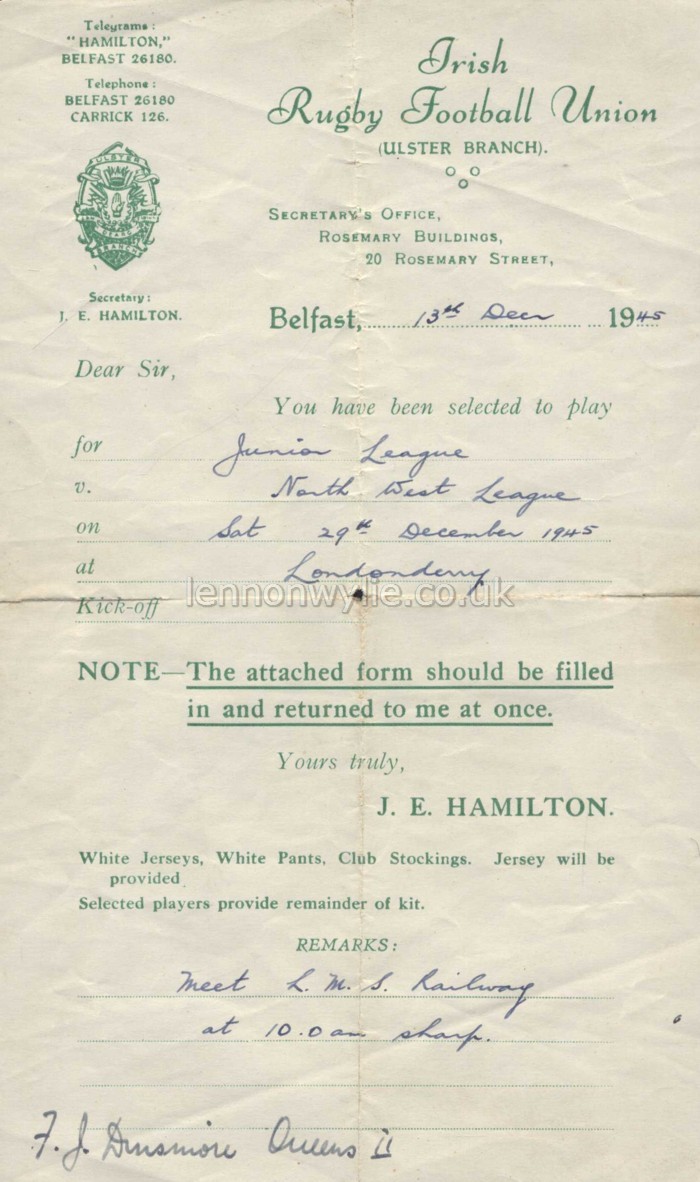 Telegrams:
"HAMILTON,"
BELFAST 26180.
Telephone:
BELFAST 26180
CARRICK 126.
ULSTER
BRANCH
Secretary:
J. E. HAMILTON.
Irish
Rugby Football Union
(ULSTER BRANCH).
SECRETARY'S OFFICE,
ROSEMARY BUILDINGS,
20 ROSEMARY STREET,
Belfast, 13th Decr 1945
Dear Sir,
You have been selected to play
for Junior League
v. North West League
on Sat 29th December 1945
at Londonderry
Kick-off
lennonwylie.co.uk
NOTE—The attached form should be filled
in and returned to me at once.
Yours truly,
J. E. HAMILTON.
White Jerseys, White Pants, Club Stockings. Jersey will be
provided.
Selected players provide remainder of kit.
REMARKS:
Meet L. M. S. Railway
at 10.0 am sharp.
F. J. Dinsmore Queens II